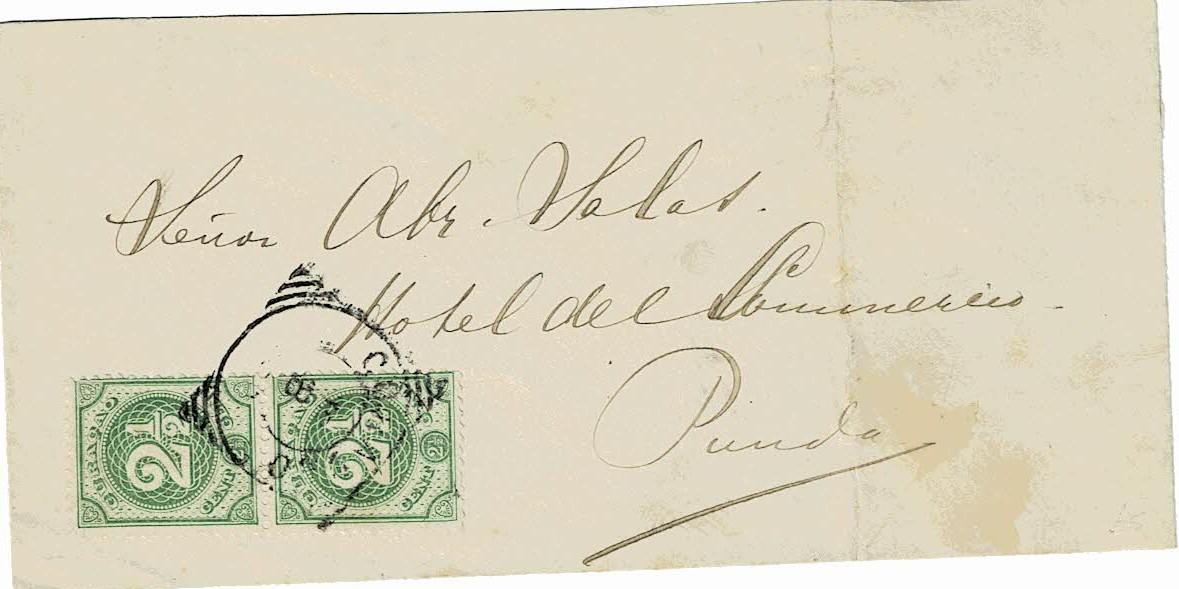 Señor Abr. Salas.
Hotel del Commercio -
Punda
CURAÇAO
2½
CENT
CURAÇAO
2½
CENT